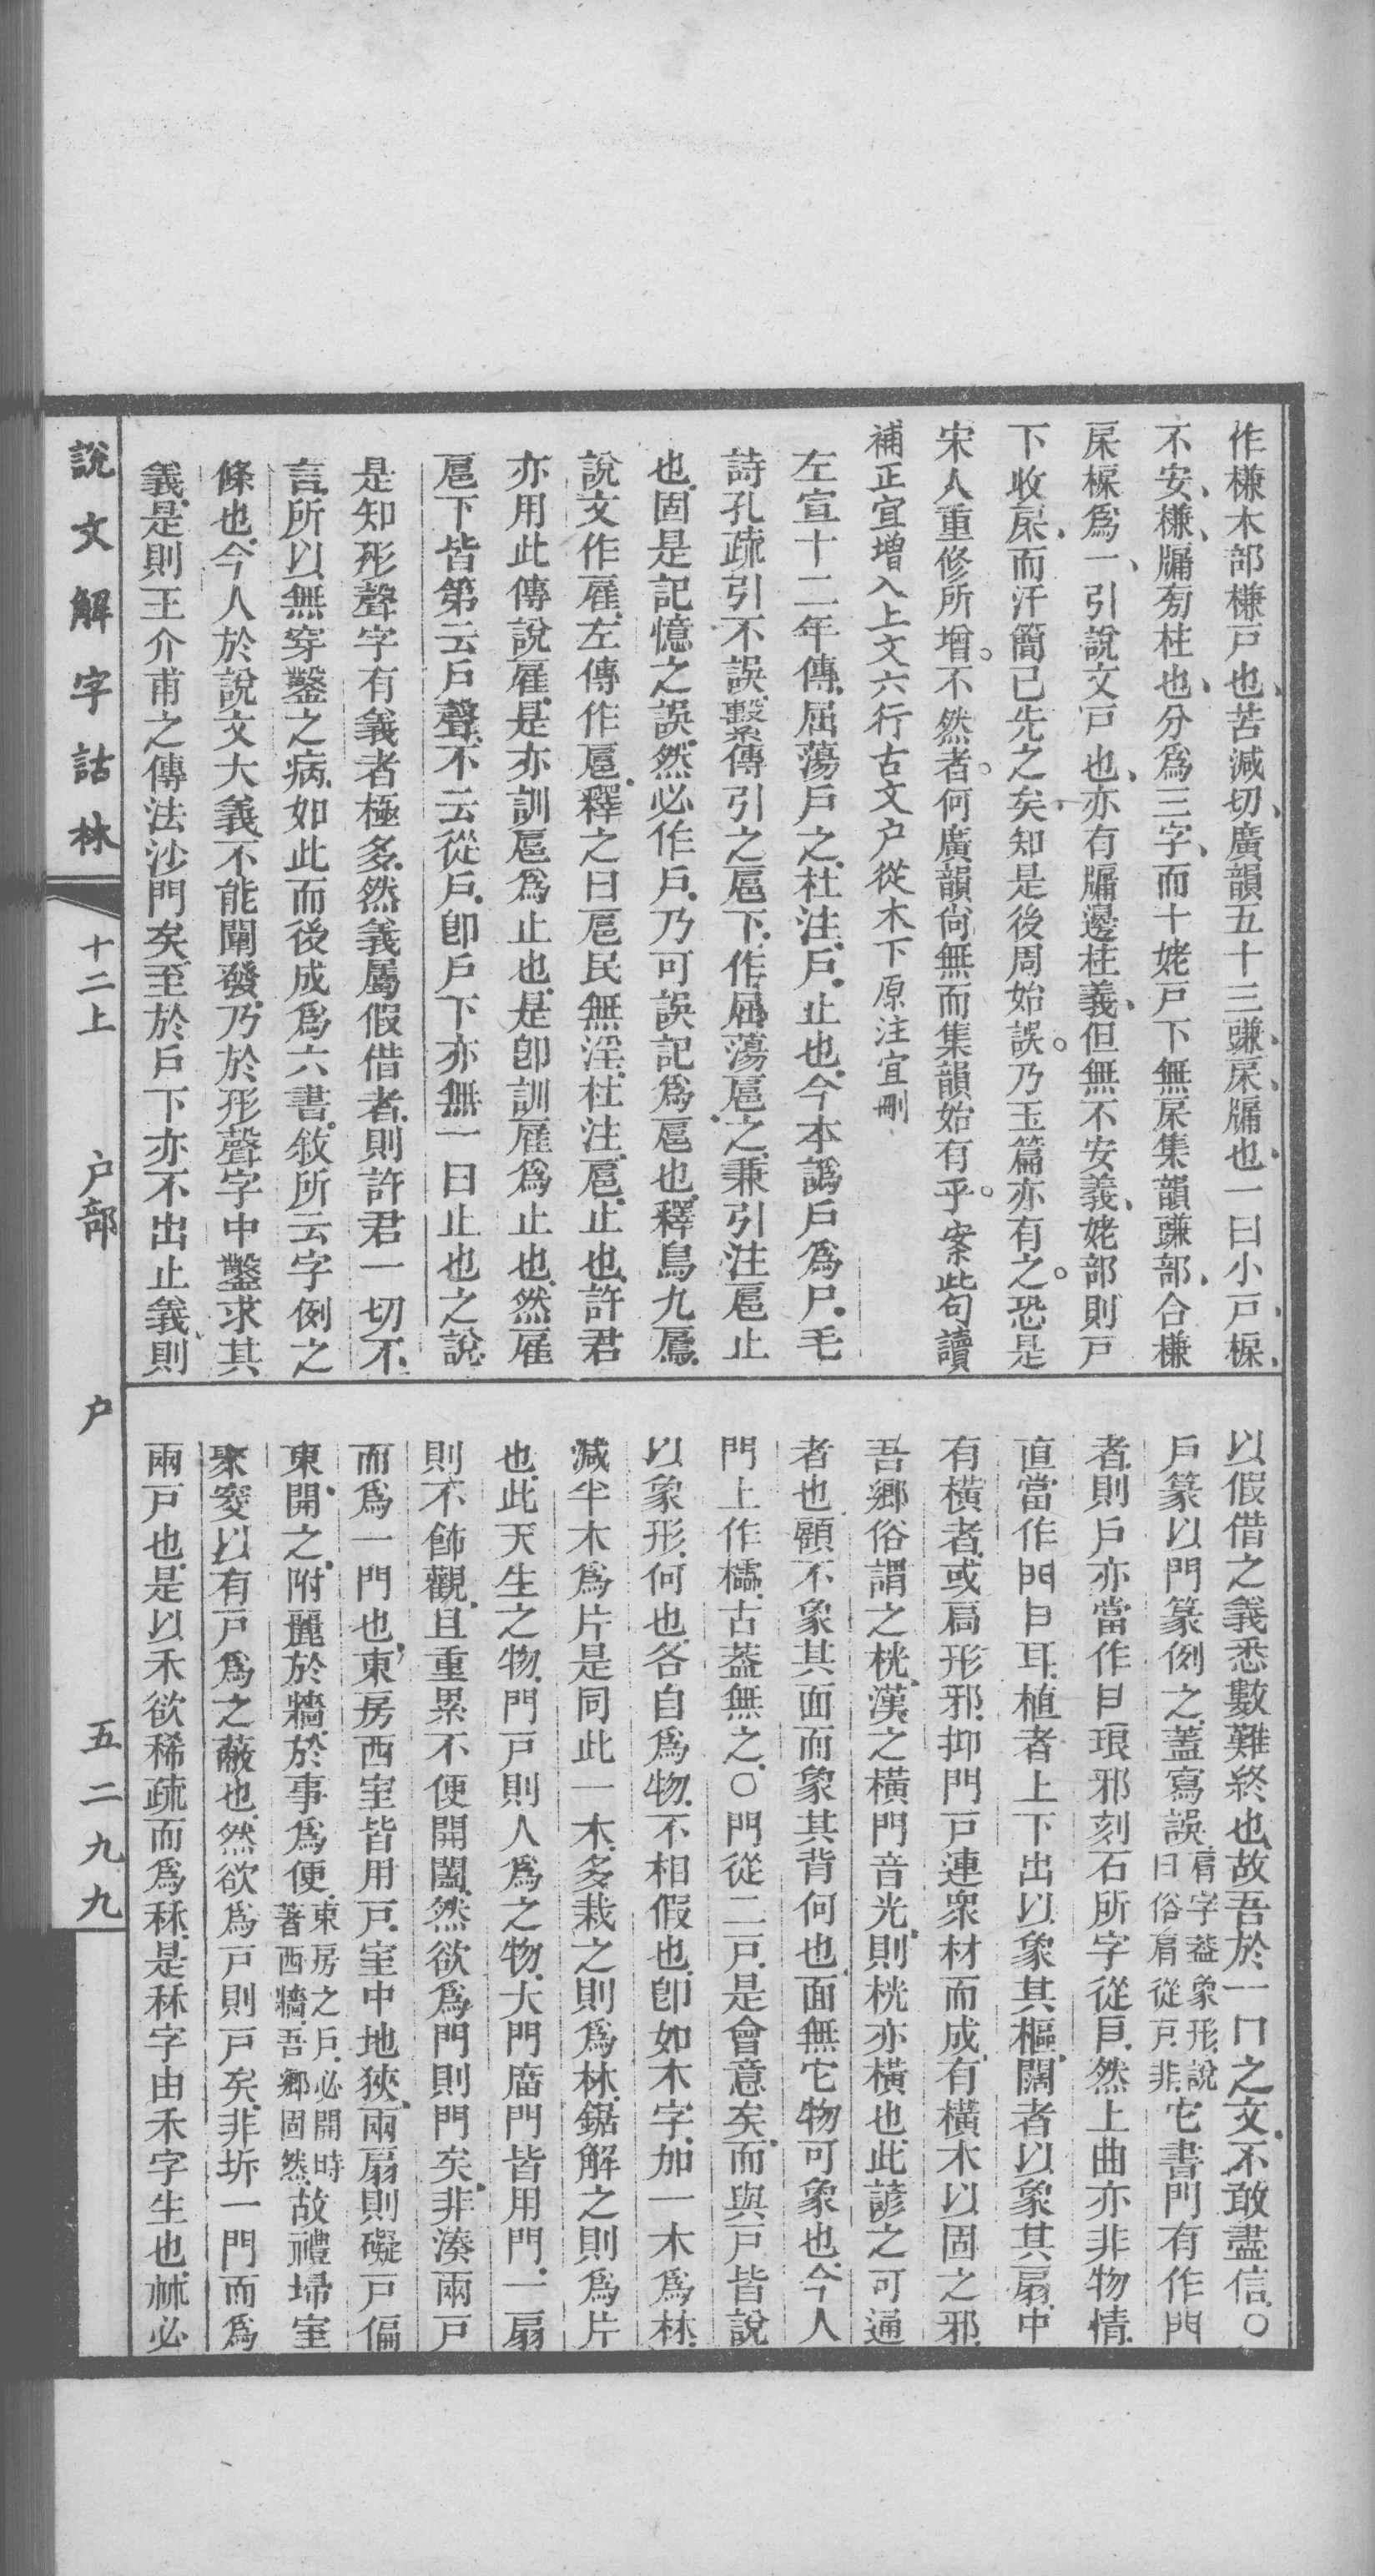 作槏木部槏戸也苦減切廣韻五十三豏㦿牖也一曰小戸槏
不安槏牖旁柱也分爲三字而十姥戸下無㦿集韻豏部合槏
㦿槏爲一引說文戸也亦有牖邊柱義但無不安義姥部則戸
下收㦿而汗簡已先之矣知是後周始誤乃玉篇亦有之恐是
宋人重修所增不然者何廣韻尙無而集韻始有乎案此句讀
補正宜增入上文六行古文戶從木下原注宜刪
左宣十二年傳屈蕩戸之杜注戸止也今本譌戸爲尸毛
詩孔疏引不誤繫傳引之扈下作屈蕩扈之兼引注扈止
也固是記憶之誤然必作戸乃可誤記爲扈也釋鳥九鳸
說文作雇左傳作扈釋之曰扈民無淫杜注扈止也許君
亦用此傳說雇是亦訓扈爲止也是卽訓雇爲止也然雇
扈下皆第云戸聲不云從戸卽戸下亦無一曰止也之說
是知形聲字有義者極多然義屬假借者則許君一切不
言所以無穿鑿之病如此而後成爲六書敘所云字例之
條也今人於說文大義不能闡發乃於形聲字中鑿求其
義是則王介甫之傳法沙門矣至於戸下亦不出止義則
以假借之義悉數難終也故吾於一冂之文不敢盡信○
戸篆以門篆例之蓋寫誤肩字葢象形說曰俗肩從戸非它書門有作門
者則戸亦當作戸琅邪刻石所字從戸然上曲亦非物情
直當作門戸耳植者上下出以象其樞闊者以象其扇中
有橫者或扃形邪抑門戸連衆材而成有橫木以固之邪
吾鄉俗謂之桄漢之橫門音光則桄亦橫也此諺之可通
者也顧不象其面而象其背何也面無它物可象也今人
門上作櫺古葢無之○門從二戸是會意矣而與戸皆說
以象形何也各自爲物不相假也卽如木字加一木爲林
減半木爲片是同此一木多栽之則爲林鋸解之則爲片
也此天生之物門戸則人爲之物大門廟門皆用門一扇
則不飾觀且重累不便開闔然欲爲門則門矣非湊兩戸
而爲一門也東房西室皆用戸室中地狹兩扇則礙戸偏
東開之附麗於牆於事爲便東房之戸必開時著西牆吾鄉固然故禮埽室
聚穾以有戸爲之蔽也然欲爲戸則戸矣非坼一門而爲
兩戸也是以禾欲稀疏而爲秝是秝字由禾字生也𣏟必
說文解字詁林
十二上
戶部
戶
五二九九